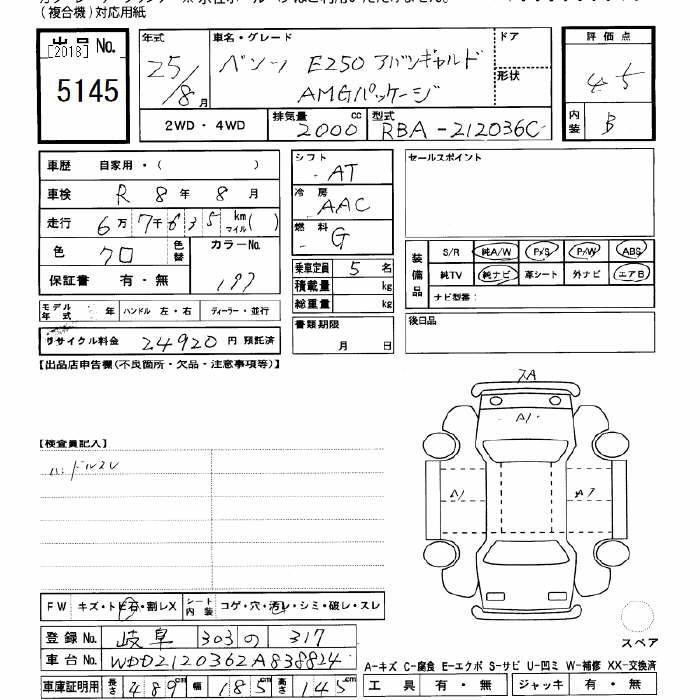 (複合機)対応用紙
出品 No. 年式 車名・グレード ドア 評価点
[2013] 25/8月 ベンツ E250 アバンギャルド 形状 4.5
5145 AMGパッケージ
2WD・4WD 排気量 2000 cc 型式 RBA-212036C 内装 B
車歴 自家用・( ) シフト AT セールスポイント
車検 R 8年 8月 冷房 AAC
走行 6万7千635 km マイル( ) 燃料 G
色 クロ 色替 カラーNo. 197
装備品 S/R 純A/W P/S P/W ABS
乗車定員 5名 純TV 純ナビ 革シート 外ナビ エアB
保証書 有・無 積載量 kg ナビ型番:
総重量 kg
モデル年式 年 ハンドル 左・右 ディーラー・並行 書類期限 月 日 後日品
リサイクル料金 24920円 預託済
【出品店申告欄(不良箇所・欠品・注意事項等)】
A1
【検査員記入】
ハンドルスレ
A1
FW キズ・トビ石・割レX シート内装 コゲ・穴・汚レ・シミ・破レ・スレ
登録No. 岐阜 303 の 317
スペア
車台No. WDD2120362A838824
A-キズ C-腐食 E-エクボ S-サビ U-凹ミ W-補修 XX-交換済
車庫証明用 長さ 489cm 幅 185cm 高さ 145cm 工具 有・無 ジャッキ 有・無